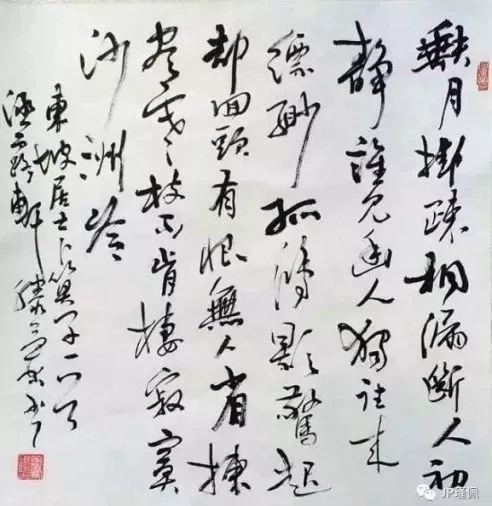 缺月掛疎桐漏斷人初
靜誰見幽人獨往來
縹緲孤鴻影驚起
却回頭有恨無人省揀
盡寒枝不肯棲寂寞
沙洲冷
東坡居士卜算子
軒書
JP瑾佩